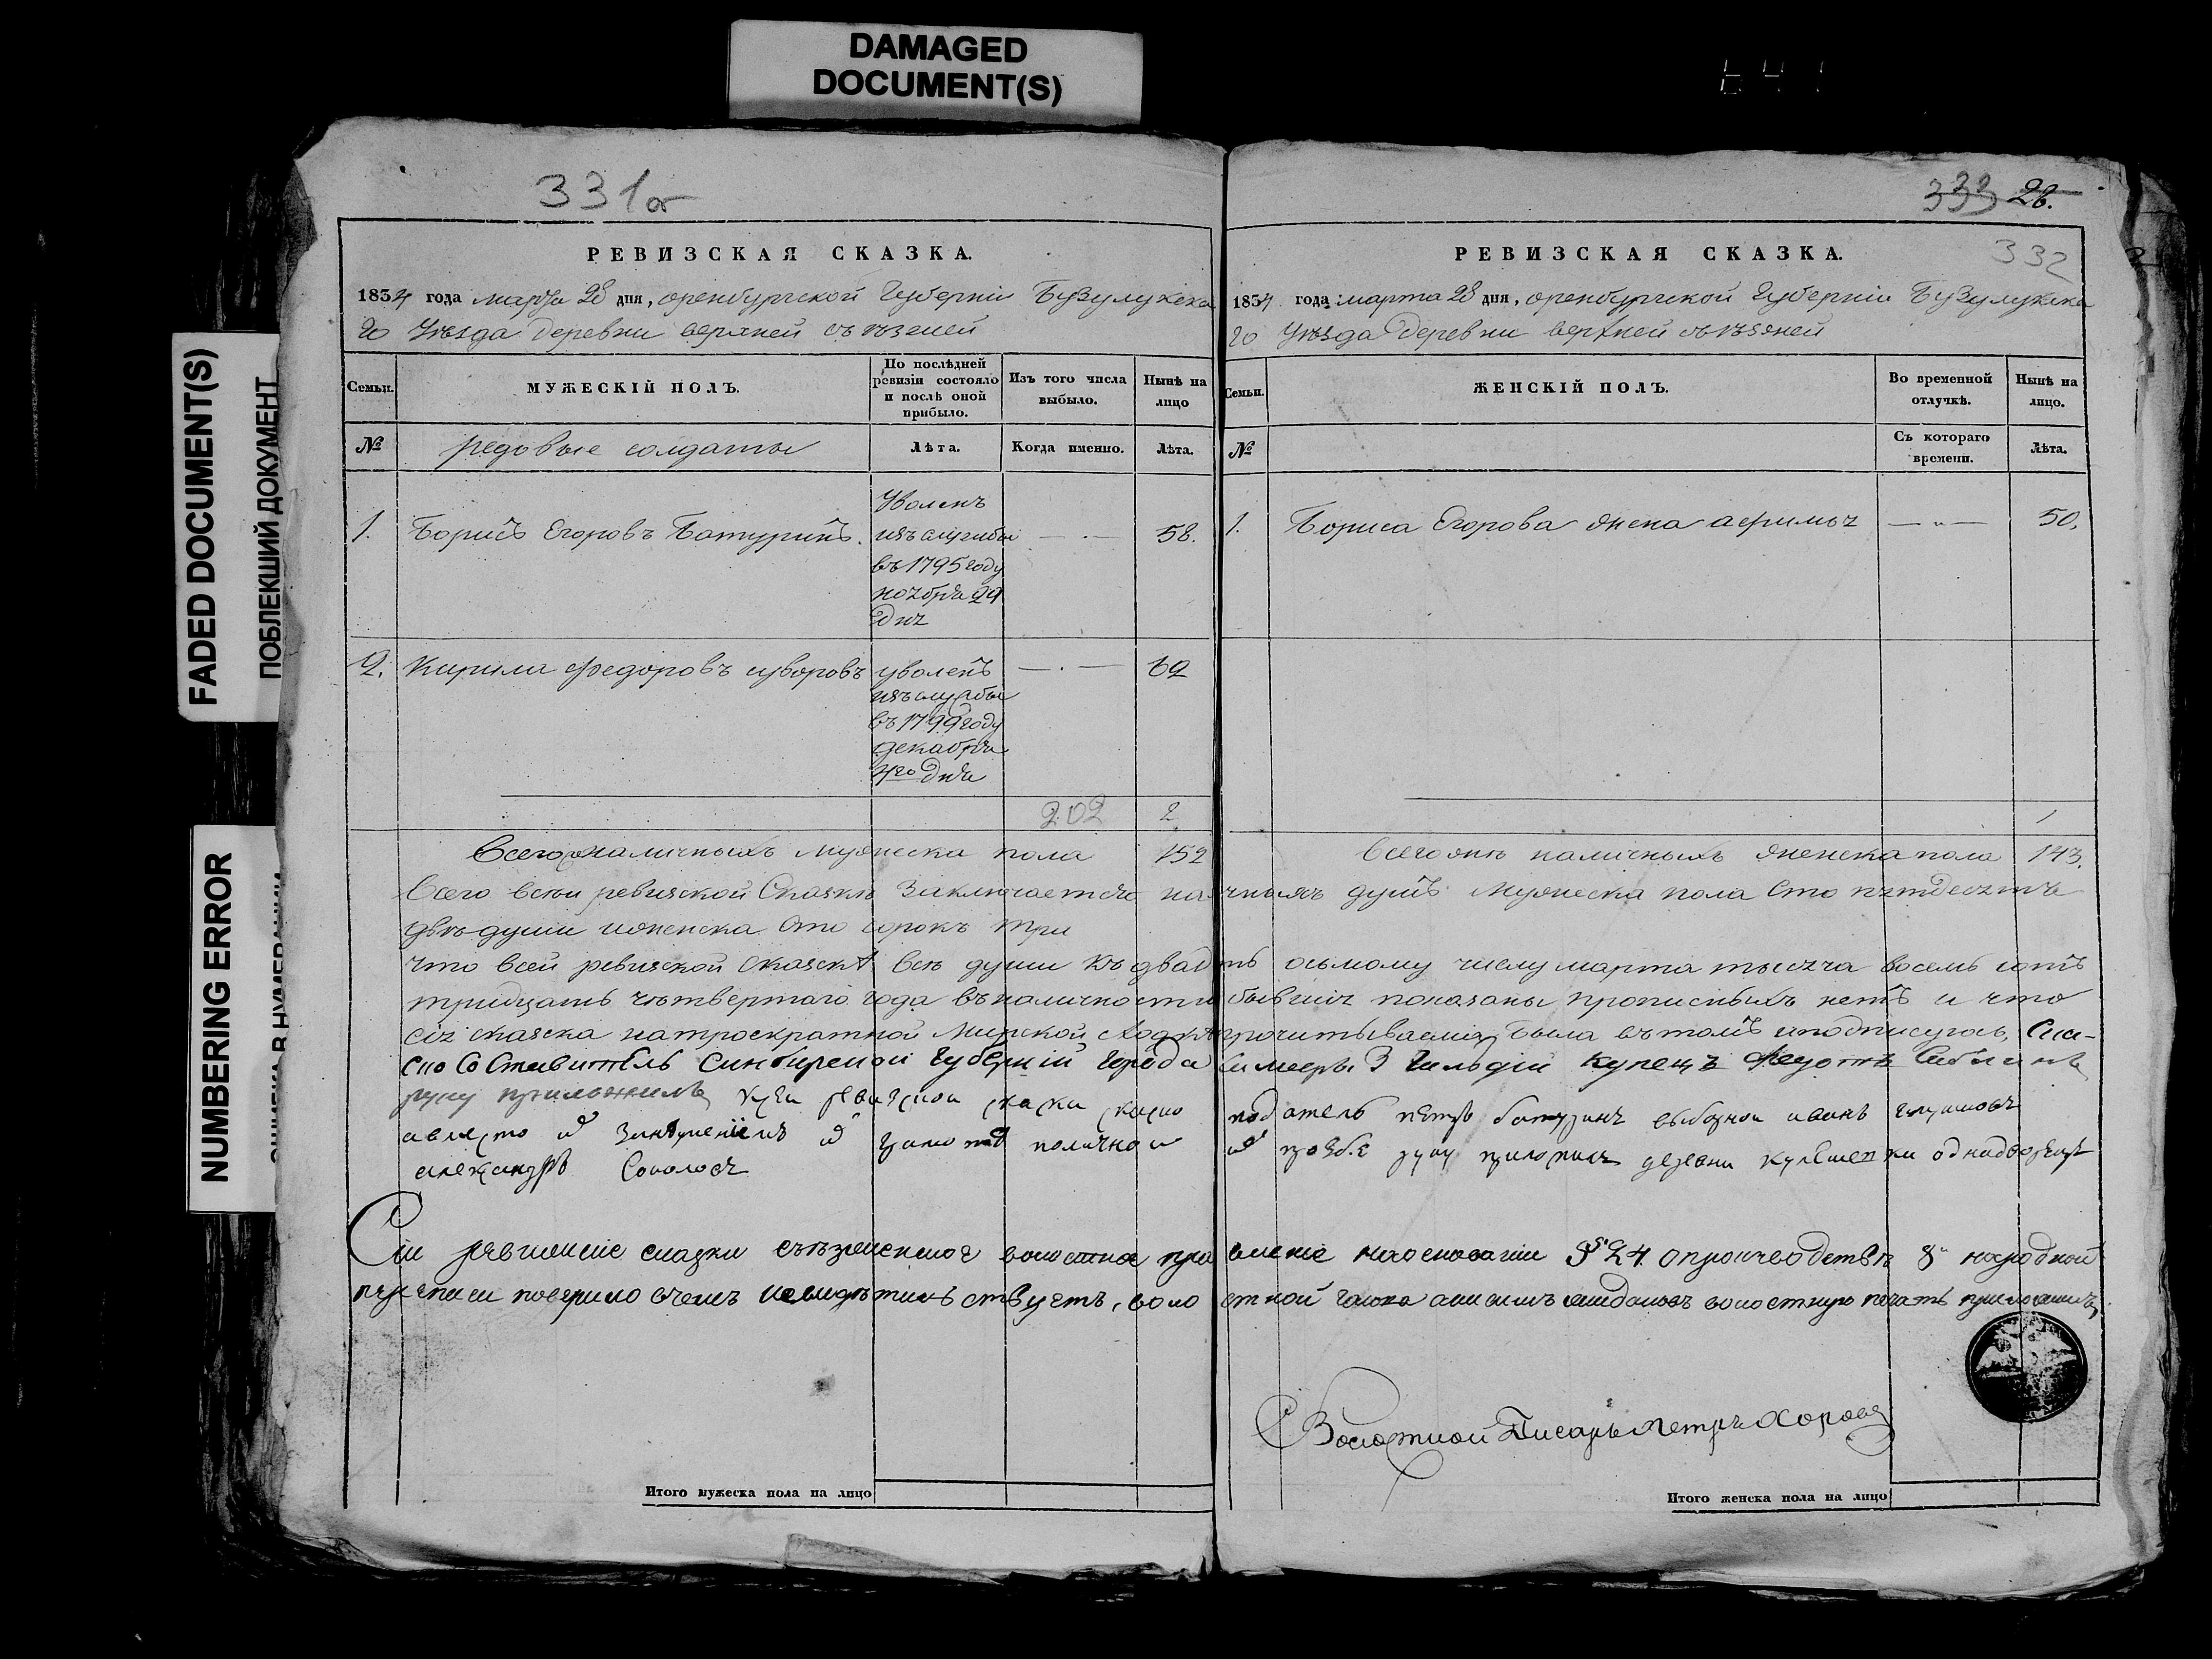 DAMAGED
DOCUMENT(S)
FADED DOCUMENT(S)
ПОБЛЕКШИЙ ДОКУМЕНТ
NUMBERING ERROR
331об
РЕВИЗСКАЯ СКАЗКА.
1834 года марта 28 дня, оренбургской Губерніи Бузулукска
го Уѣзда деревни верхней съѣзжей
Семьи.
МУЖЕСКІЙ ПОЛЪ.
По послѣдней
ревизіи состояло
и послѣ оной
прибыло.
Изъ того числа
выбыло.
Нынѣ на
лицо
№
редовые солдаты
Лѣта.
Когда именно.
Лѣта.
1. Борисъ Егоровъ Батуринъ.
Уволенъ
изъ службы
въ 1795 году
ноября 29
дня
58.
2. Кирила Федоровъ суворовъ
уволенъ
изъ службы
въ 1799 году
декабря
4го дня
62
202 2
Всего наличныхъ мужеска пола 152
333 26.
332
РЕВИЗСКАЯ СКАЗКА.
1834 года марта 28 дня, оренбургской Губерніи Бузулукска
го Уѣзда деревни верхней съѣзжей
Семьи.
ЖЕНСКІЙ ПОЛЪ.
Во временной
отлучкѣ.
Нынѣ на
лицо.
№
Съ котораго
времени.
Лѣта.
1. Бориса Егорова жена 50.
1
Всего наличныхъ женска пола 143.
Всего всей ревизской Сказкѣ Заключается наличныхъ душъ мужеска пола Сто пятдесятъ
двѣ души женска Сто сорокъ три
что всей ревизской сказкѣ всѣ души къ двадцать осьмому числу марта тысяча восемь сотъ
тридцать четвертаго года въ наличности бывшія показаны прописныхъ нетъ и что
сія сказка на троекратной мирской сходкѣ прочитываема была въ томъ и подписуюсь,
Составитель Синбирской Губерній Города Самары 3 Гильдіи Купецъ Федотъ
руку приложилъ ревизской сказки податель петръ батуринъ выборной иванъ
руку приложилъ деревни однадворецъ
александръ Соколовъ
Сіи ревизскіе сказки съѣзженское волостное правленіе на основаніи §. 24. о производствѣ 8й народной
переписи повѣрило въ чемъ и свидѣтельствуетъ, волостной голова волостную печать приложилъ
Волостной Писарь Петръ
Итого мужеска пола на лицо
Итого женска пола на лицо